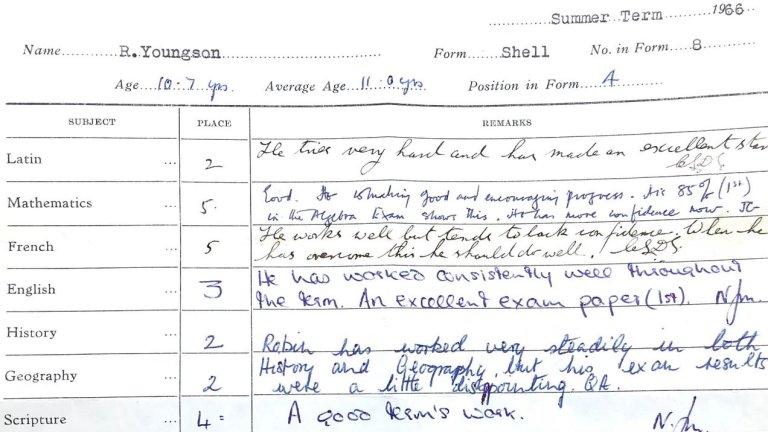 Summer Term 1966
Name R.Youngson Form Shell No. in Form 8
Age 10-7 yrs. Average Age 11.0 yrs Position in Form 4
SUBJECT PLACE REMARKS
Latin ... 2 He tries very hard and has made an excellent star
Mathematics ... 5. Good. He is making good and encouraging progress. His 85% (1st)
in the Algebra Exam shows this. He has more confidence now.
French ... 5 He works well but tends to lack confidence. When he
has overcome this he should do well.
English ... 3 He has worked consistently well throughout
the term. An excellent exam paper (1st).
History ... 2 Robin has worked very steadily in both
Geography ... 2 History and Geography, but his exam results
were a little disappointing.
Scripture ... 4= A good term's work.